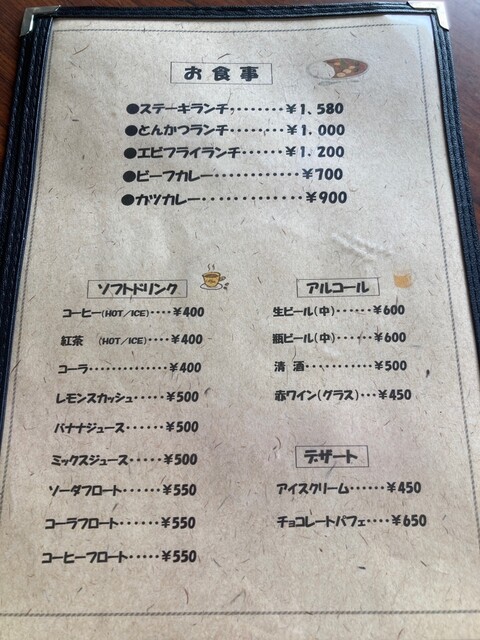 お食事
●ステーキランチ・・・・・・・・¥1、580
●とんかつランチ・・・・・・・・¥1、000
●エビフライランチ・・・・・・¥1、200
●ビーフカレー・・・・・・・・・・・・¥700
●カツカレー・・・・・・・・・・・・・¥900
ソフトドリンク
コーヒー(HOT/ICE)・・・・¥400
紅茶 (HOT/ICE)・・・・¥400
コーラ・・・・・・・・・・・・¥400
レモンスカッシュ・・・・・¥500
バナナジュース・・・・・・¥500
ミックスジュース・・・・・¥500
ソーダフロート・・・・・・¥550
コーラフロート・・・・・・¥550
コーヒーフロート・・・・・¥550
アルコール
生ビール(中)・・・・・・¥600
瓶ビール(中)・・・・・・¥600
清 酒・・・・・・・・・・・¥500
赤ワイン(グラス)・・・¥450
デザート
アイスクリーム・・・・・・¥450
チョコレートパフェ・・・・¥650